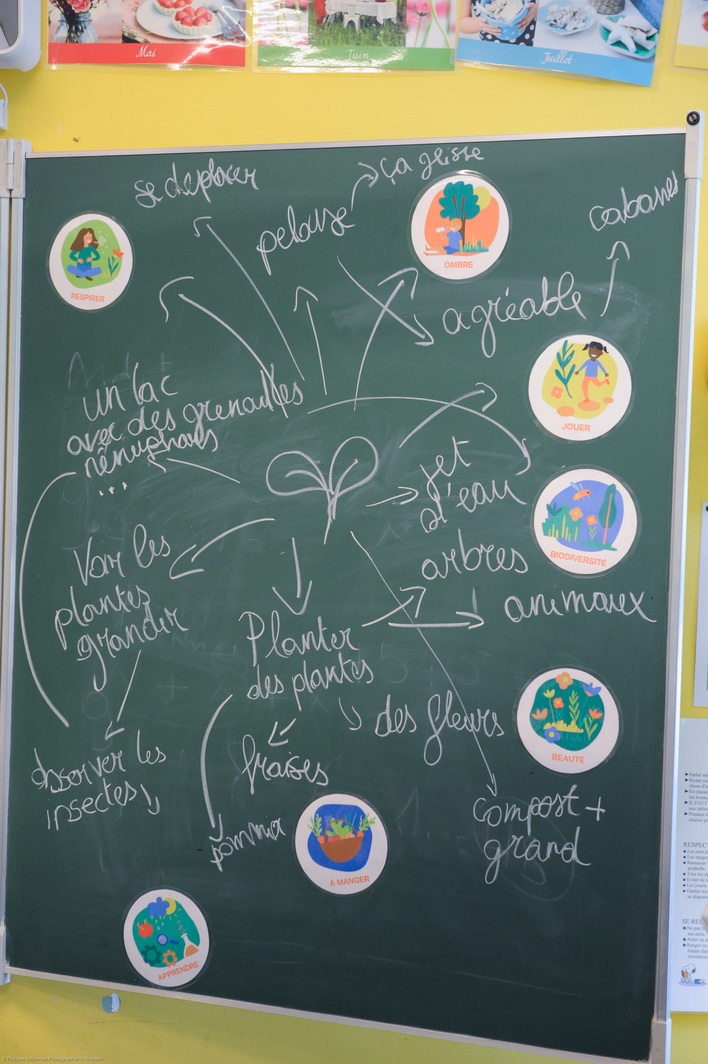 Mai
Juin
Juillet
se deplacer
ça glisse
pelouse
cabanes
RESPIRER
OMBRE
agréable
JOUER
un lac
avec des grenouilles
nénuphars
...
jet
d'eau
BIODIVERSITÉ
Voir les
plantes
grandir
arbres
animaux
Planter
des plantes
des fleurs
BEAUTÉ
observer les
insectes
fraises
compost +
grand
À MANGER
APPRENDRE
RESPECT